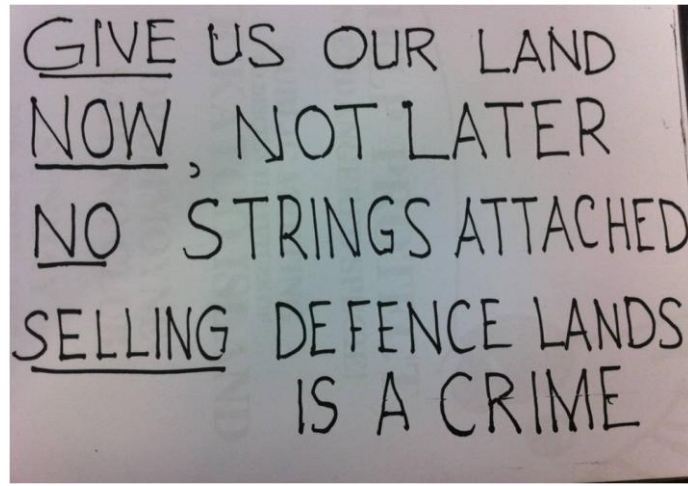 GIVE US OUR LAND
NOW, NOT LATER
NO STRINGS ATTACHED
SELLING DEFENCE LANDS
IS A CRIME